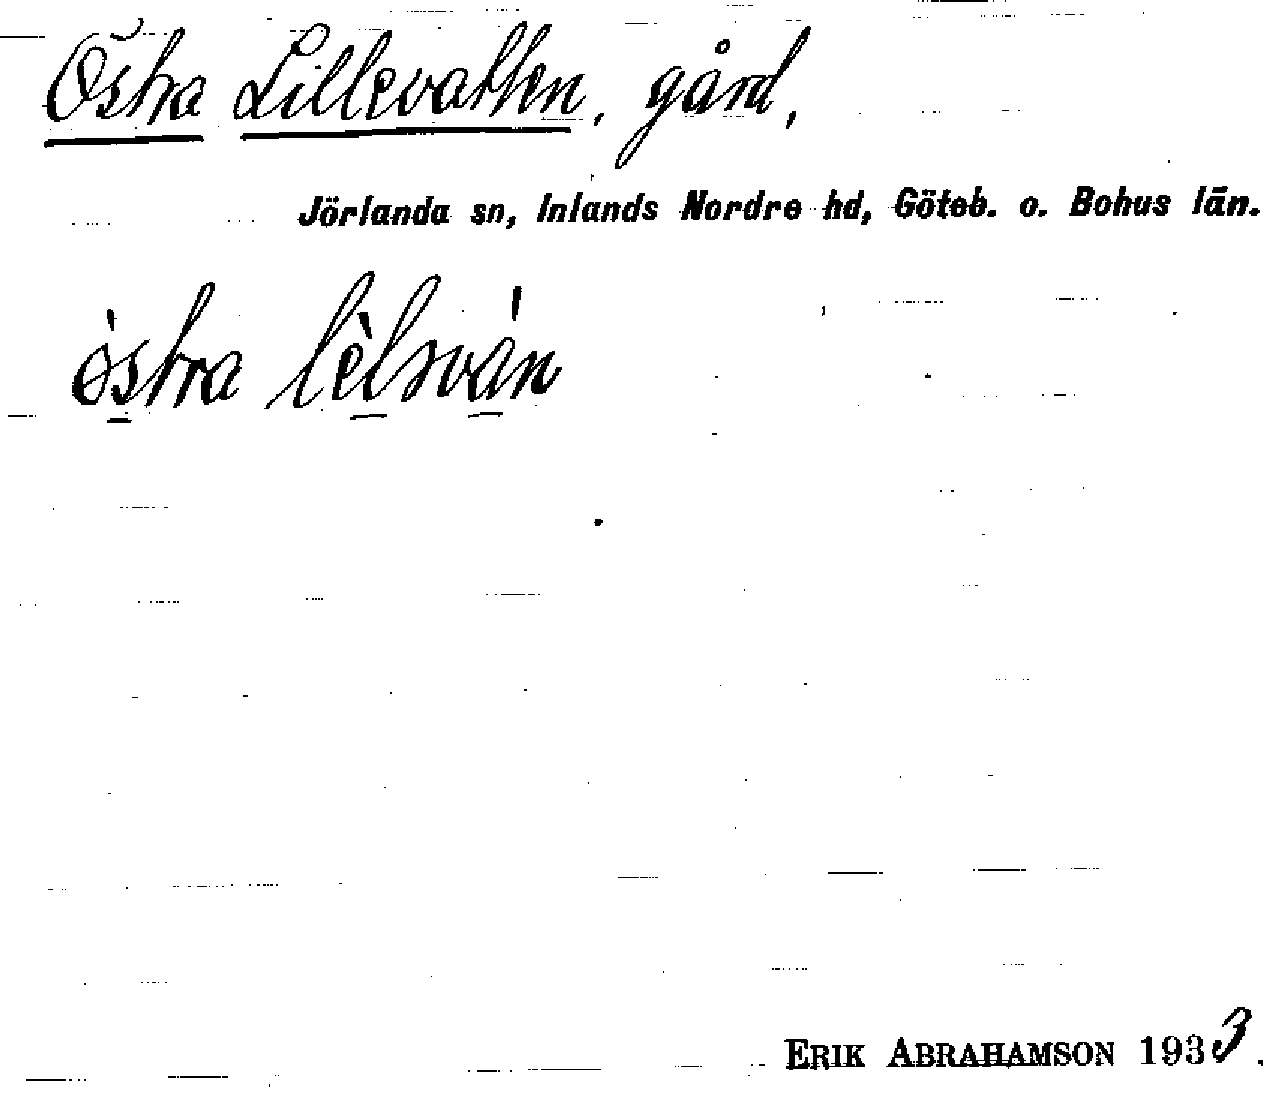 Östra Lillevatten, gård,
Jörlanda sn, Inlands Nordre hd, Göteb. o. Bohus län.
östra
ERIK ABRAHAMSON 1933.